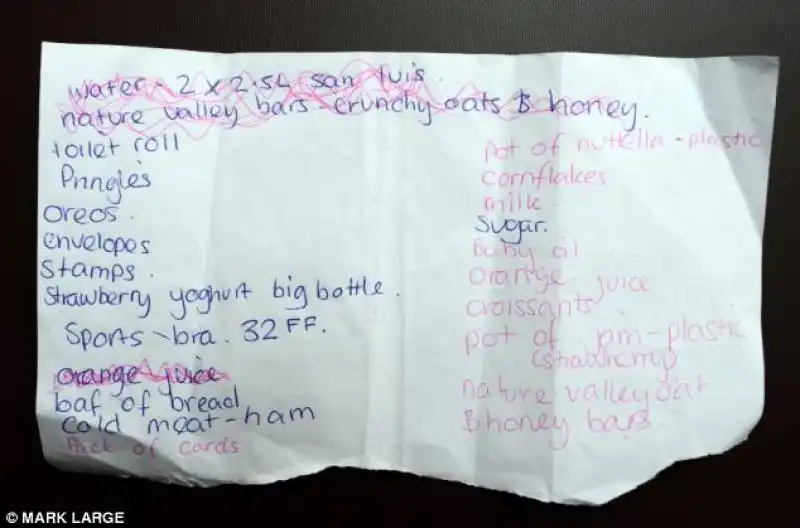 water - 2 x 2.5L san luis.
nature valley bars crunchy oats & honey.
toilet roll
Pringles
oreos.
envelopes
stamps.
strawberry yoghurt big bottle.
Sports bra. 32 FF.
orange juice
baf of bread
cold meat-ham
Pack of cards
pot of nuttella - plastic
cornflakes
milk
sugar.
Baby oil
orange juice
croissants
pot of jam - plastic
nature valley oat
& honey bars
© MARK LARGE